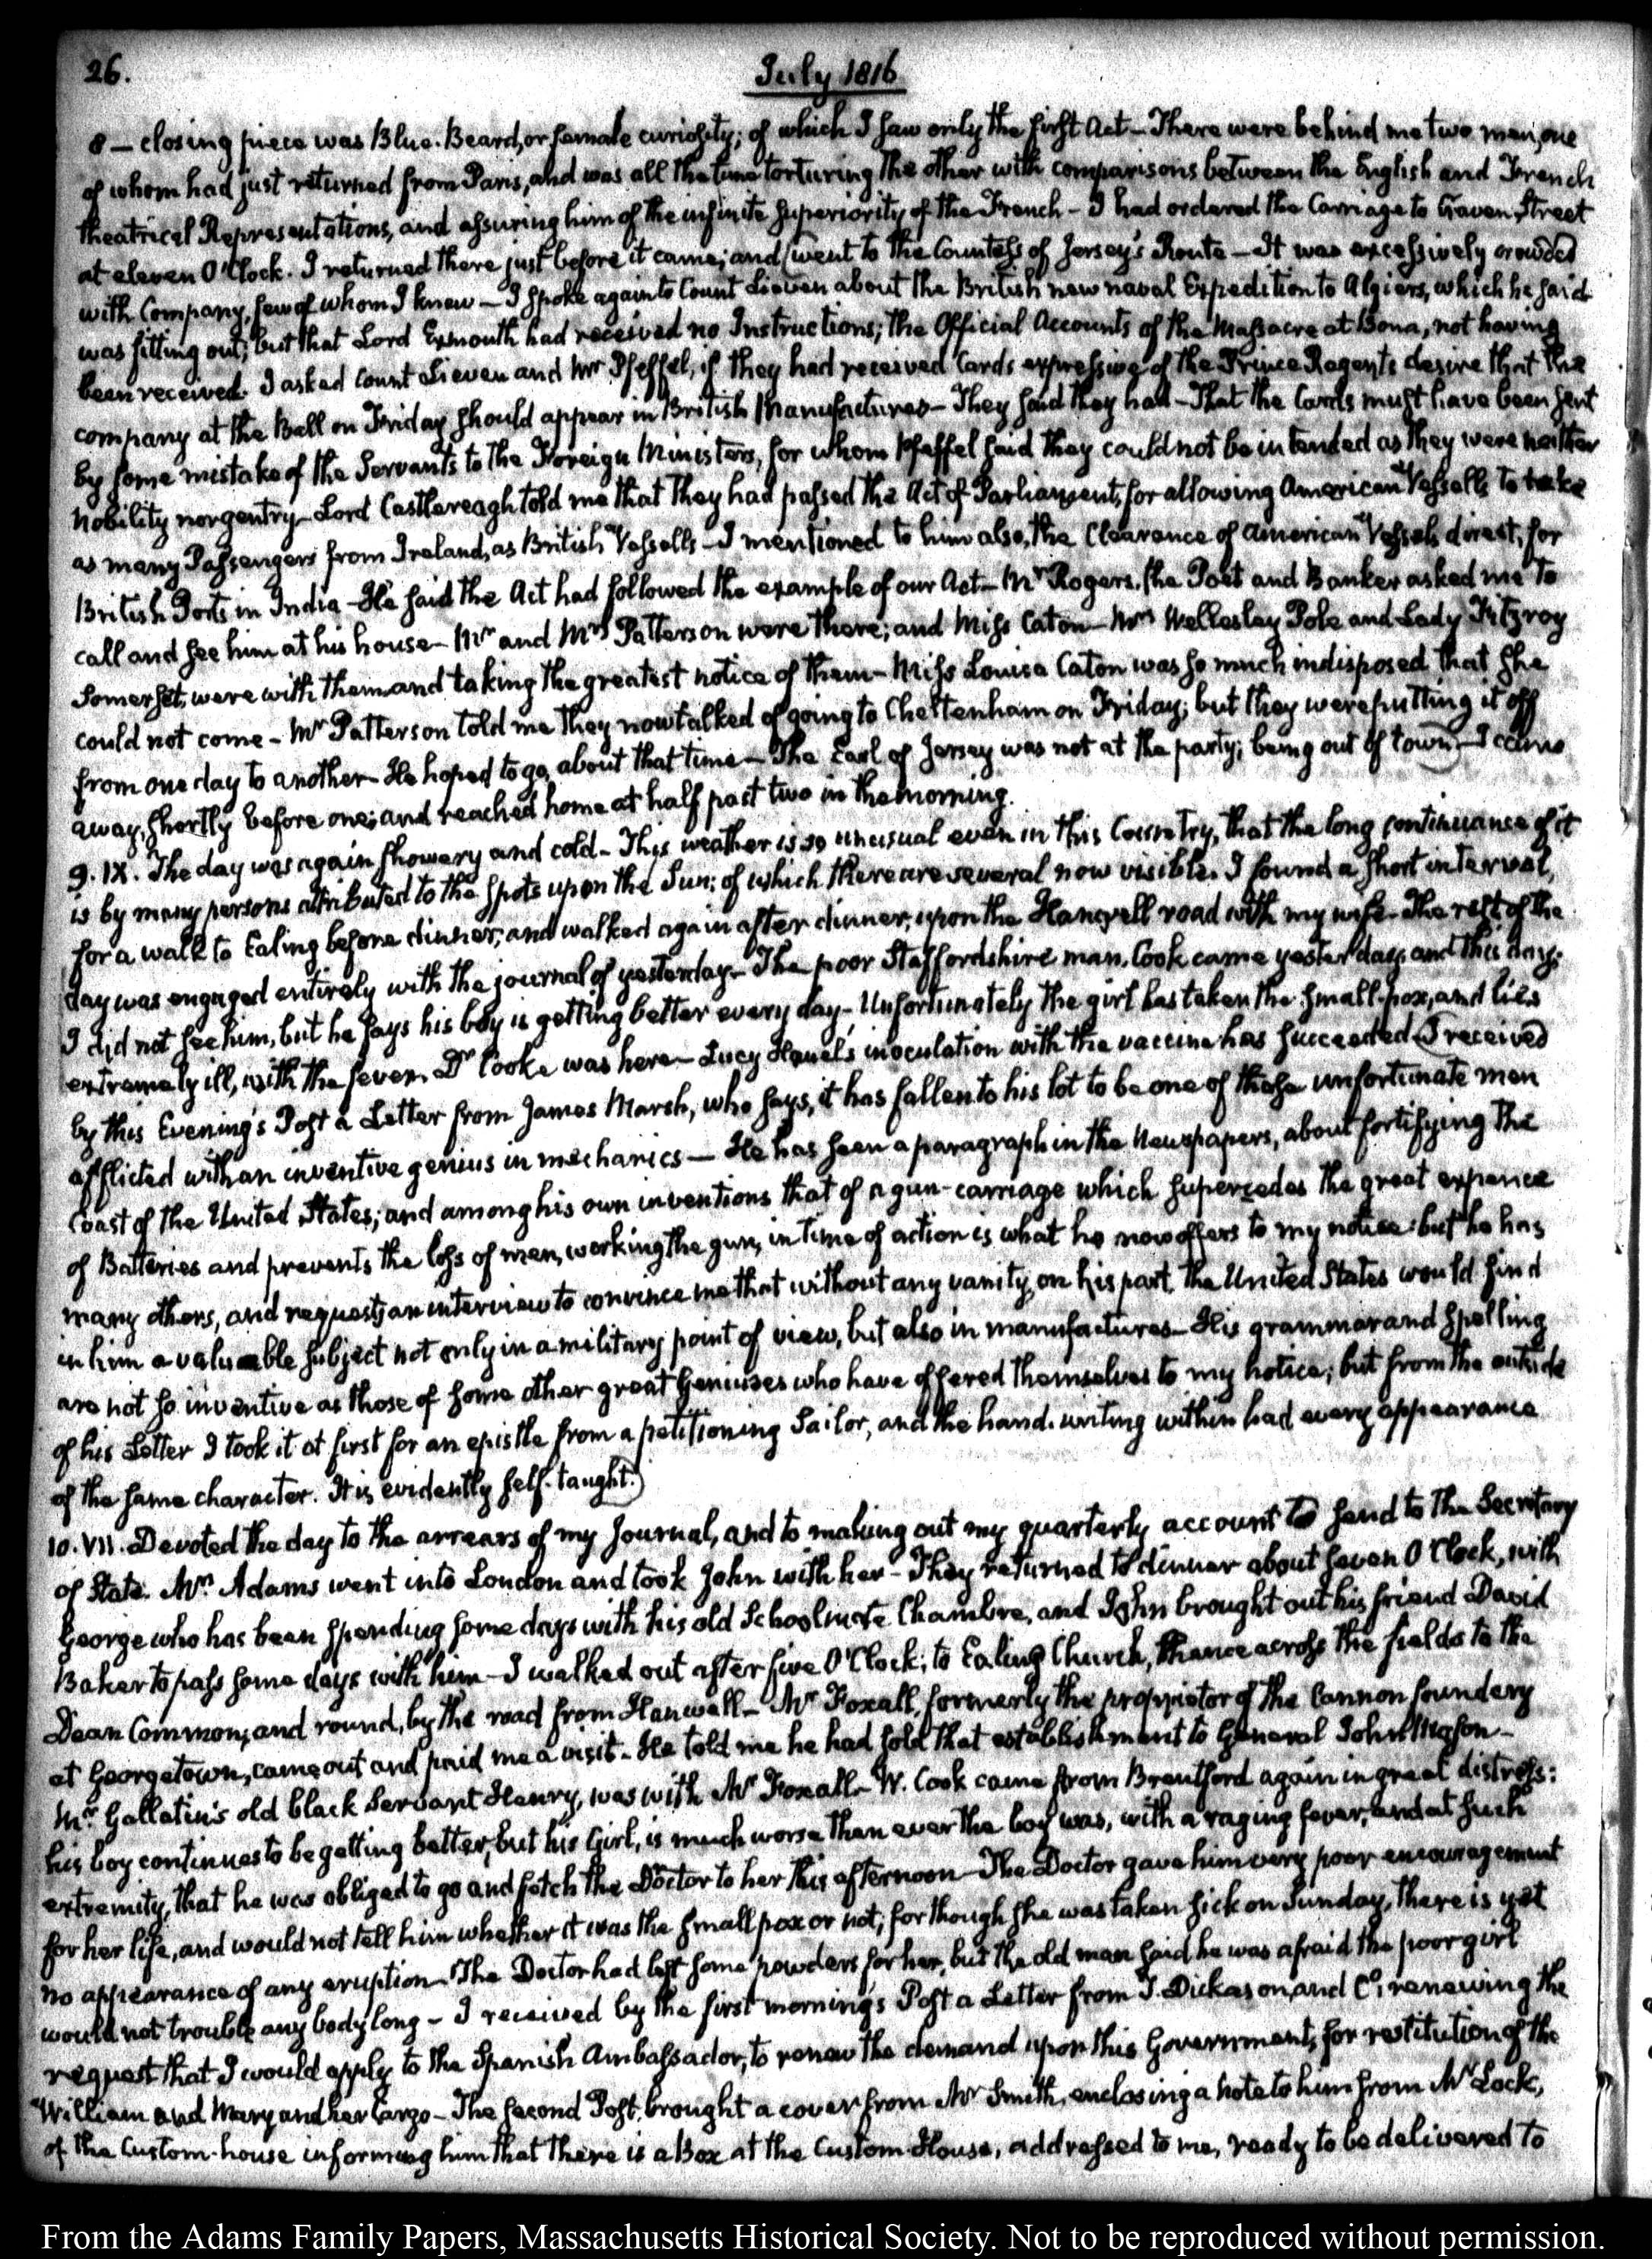 26.
July 1816
8 — closing piece was Blue-Beard, or female curiosity; of which I saw only the first Act — There were behind me two men, one
of whom had just returned from Paris, and was all the time torturing the other with comparisons between the English and French
theatrical Representations, and assuring him of the infinite superiority of the French — I had ordered the Carriage to Craven Street
at eleven O'Clock. I returned there just before it came; and went to the Countess of Jersey's Route — It was excessively crowded
with Company, few of whom I knew — I spoke again to Count Lieven about the British new naval Expedition to Algiers, which he said
was fitting out; but that Lord Exmouth had received no Instructions; the Official Accounts of the Massacre at Bona, not having
been received. I asked Count Lieven and Mr Pfeffel, if they had received Cards expressive of the Prince Regent's desire that the
company at the Ball on Friday should appear in British Manufactures — They said they had — That the Cards must have been sent
by some mistake of the Servants to the Foreign Ministers, for whom Pfeffel said they could not be intended as they were neither
nobility nor gentry — Lord Castlereagh told me that they had passed the Act of Parliament, for allowing American Vessells to take
as many Passengers from Ireland, as British Vessells — I mentioned to him also, the Clearance of American Vessels direct, for
British Ports in India — He said the Act had followed the example of our Act — Mr Rogers, the Poet and Banker asked me to
call and see him at his house — Mr and Mrs Patterson were there; and Miss Caton — Mrs Wellesley Pole and Lady Fitzroy
Somerset, were with them and taking the greatest notice of them — Miss Louisa Caton was so much indisposed that she
could not come — Mr Patterson told me they now talked of going to Cheltenham on Friday; but they were putting it off
from one day to another — He hoped to go, about that time — The Earl of Jersey was not at the party; being out of town — I came
away, shortly before one; and reached home at half past two in the morning.
9. IX. The day was again showery and cold — This weather is so unusual even in this Country, that the long continuance of it
is by many persons attributed to the spots upon the Sun; of which there are several now visible. I found a short interval,
for a walk to Ealing before dinner; and walked again after dinner, upon the Hanwell road with my wife — The rest of the
day was engaged entirely with the journal of yesterday — The poor Staffordshire man, Cook came yesterday, and this day;
I did not see him, but he says his boy is getting better every day — Unfortunately the girl has taken the small-pox, and lies
extremely ill, with the fever. Dr Cooke was here — Lucy Houel's inoculation with the vaccine has succeeded — I received
by this Evening's Post a Letter from James Marsh, who says, it has fallen to his lot to be one of those unfortunate men
afflicted with an inventive genius in mechanics — He has seen a paragraph in the Newspapers, about fortifying the
Coast of the United States; and among his own inventions that of a gun-carriage which supercedes the great expence
of Batteries and prevents the loss of men, working the gun, in time of action is what he now offers to my notice: but he has
many others, and requests an interview to convince me that without any vanity, on his part, the United States would find
in him a valuable subject not only in a military point of view, but also in manufactures — His grammar and spelling
are not so inventive as those of some other great Geniuses who have offered themselves to my notice; but from the outside
of his Letter I took it at first for an epistle from a petitioning Sailor, and the hand-writing within had every appearance
of the same character. It is evidently self-taught.
10. VII. Devoted the day to the arrears of my Journal, and to making out my quarterly account to send to the Secretary
of State. Mrs Adams went into London and took John with her — They returned to dinner about seven O'Clock, with
George who has been spending some days with his old Schoolmate Chambre, and John brought out his friend David
Baker to pass some days with him — I walked out after five O'Clock; to Ealing Church, thence across the fields to the
Dean Common, and round, by the road from Hanwell — Mr Foxall, formerly the proprietor of the Cannon foundery
at Georgetown, came out and paid me a visit — He told me he had sold that establishment to General John Mason —
Mr Gallatin's old black Servant Henry, was with Mr Foxall — W. Cook came from Brentford again in great distress:
his boy continues to be getting better, but his Girl, is much worse than ever the boy was, with a raging fever, and at such
extremity, that he was obliged to go and fetch the Doctor to her this afternoon — The Doctor gave him very poor encouragement
for her life, and would not tell him whether it was the small pox or not; for though she was taken sick on Sunday, there is yet
no appearance of any eruption — The Doctor had left some powders for her, but the old man said he was afraid the poor girl
would not trouble any body long — I received by the first morning's Post a Letter from T. Dickason and Co. renewing the
request that I would apply to the Spanish Ambassador, to renew the demand upon this Government, for restitution of the
William and Mary and her Cargo — The second Post, brought a cover from Mr Smith, enclosing a note to him from Mr Lock,
of the Custom-house informing him that there is a Box at the Custom-House, addressed to me, ready to be delivered to
From the Adams Family Papers, Massachusetts Historical Society. Not to be reproduced without permission.